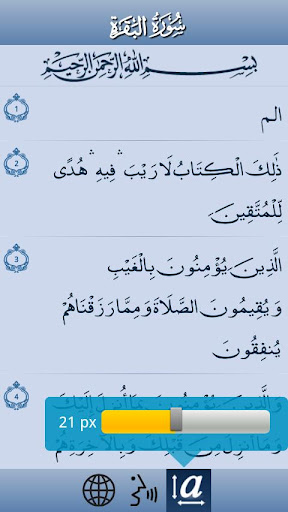 سُورَةُ الْبَقَرَةِ
بِسْمِ اللهِ الرَّحْمَنِ الرَّحِيمِ
1
الم
2
ذَٰلِكَ الْكِتَابُ لَا رَيْبَ ۛ فِيهِ ۛ هُدًى
لِّلْمُتَّقِينَ
3
الَّذِينَ يُؤْمِنُونَ بِالْغَيْبِ
وَيُقِيمُونَ الصَّلَاةَ وَمِمَّا رَزَقْنَاهُمْ
يُنفِقُونَ
4
وَالَّذِينَ يُؤْمِنُونَ بِمَا أُنزِلَ إِلَيْكَ
21 px
وَمَا أُنزِلَ مِن قَبْلِكَ وَبِالْآخِرَةِ هُمْ
a